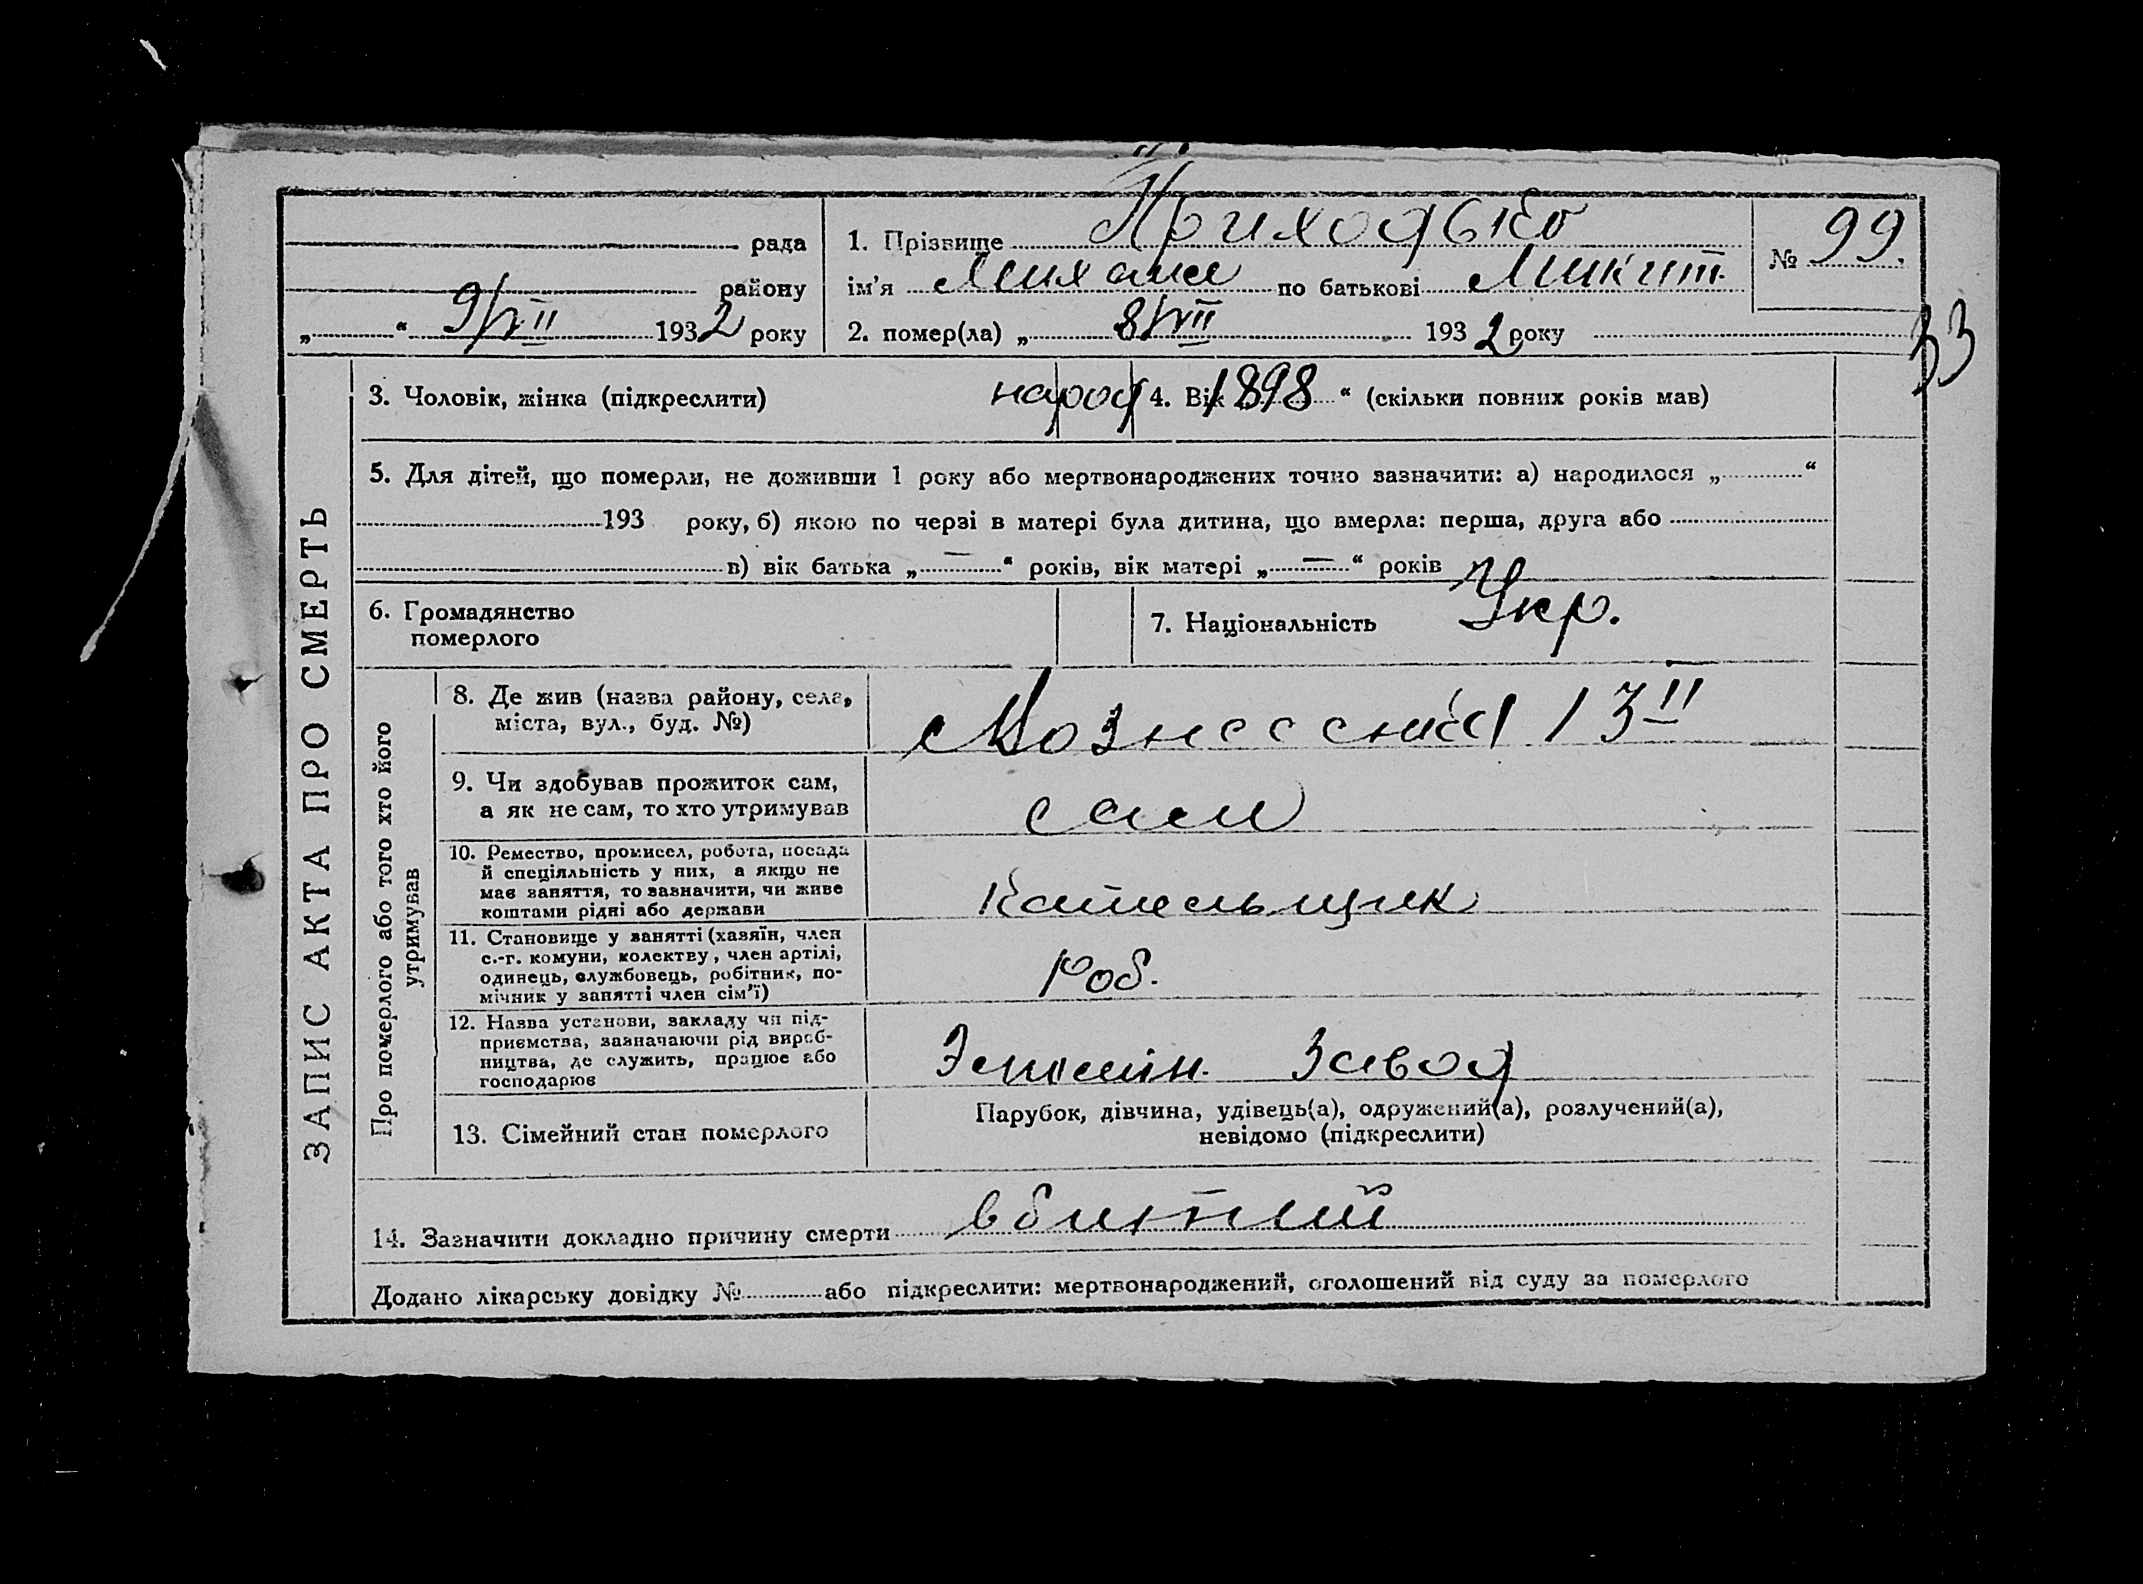 рада
району
„ “ 9/VII 1932 року
1. Прізвище Приходько
ім’я Михаил по батькові Микит.
2. помер(ла) „ 8/VII 1932 року
№ 99.
33
ЗАПИС АКТА ПРО СМЕРТЬ
3. Чоловік, жінка (підкреслити) народ 4. Вік 1898 “ (скільки повних років мав)
5. Для дітей, що померли, не доживши 1 року або мертвонароджених точно зазначити: а) народилося „ “
193 року, б) якою по черзі в матері була дитина, що вмерла: перша, друга або
в) вік батька „ — “ років, вік матері „ — “ років
6. Громадянство
померлого
7. Національність Укр.
Про померлого або того хто його
утримував
8. Де жив (назва району, села,
міста, вул., буд. №)
13
9. Чи здобував прожиток сам,
а як не сам, то хто утримував
сам
10. Ремество, промисел, робота, посада
й спеціяльність у них, а якщо не
має заняття, то зазначити, чи живе
коштами рідні або держави
Котельщик
11. Становище у занятті (хазяїн, член
с.-г. комуни, колектву, член артілі,
одинець, службовець, робітник, по-
мічник у занятті член сім’ї)
роб.
12. Назва установи, закладу чи під-
приємства, зазначаючи рід вироб-
ництва, де служить, працює або
господарює
завод
13. Сімейний стан померлого
Парубок, дівчина, удівець(а), одружений(а), розлучений(а),
невідомо (підкреслити)
14. Зазначити докладно причину смерти вбитий
Додано лікарську довідку № або підкреслити: мертвонароджений, оголошений від суду за померлого